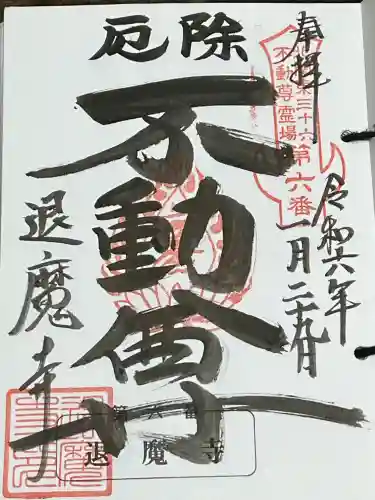 奉拝
不動尊霊場
三十六
第六番
令和六年
一月二十九日
厄除
不動尊
退魔寺
第六番
退魔寺